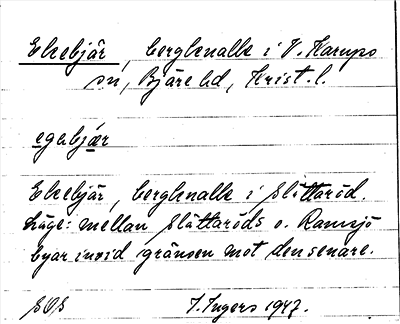 Ekebjär, bergknalle i V. Karups
sn, Bjäre hd, Krist. l.
egabjær
Ekebjär, bergknalle i Slättaröd.
Läge: mellan Slättaröds o. Ramsjö
byar invid gränsen mot densenare.
SOS I. Ingers 1947.